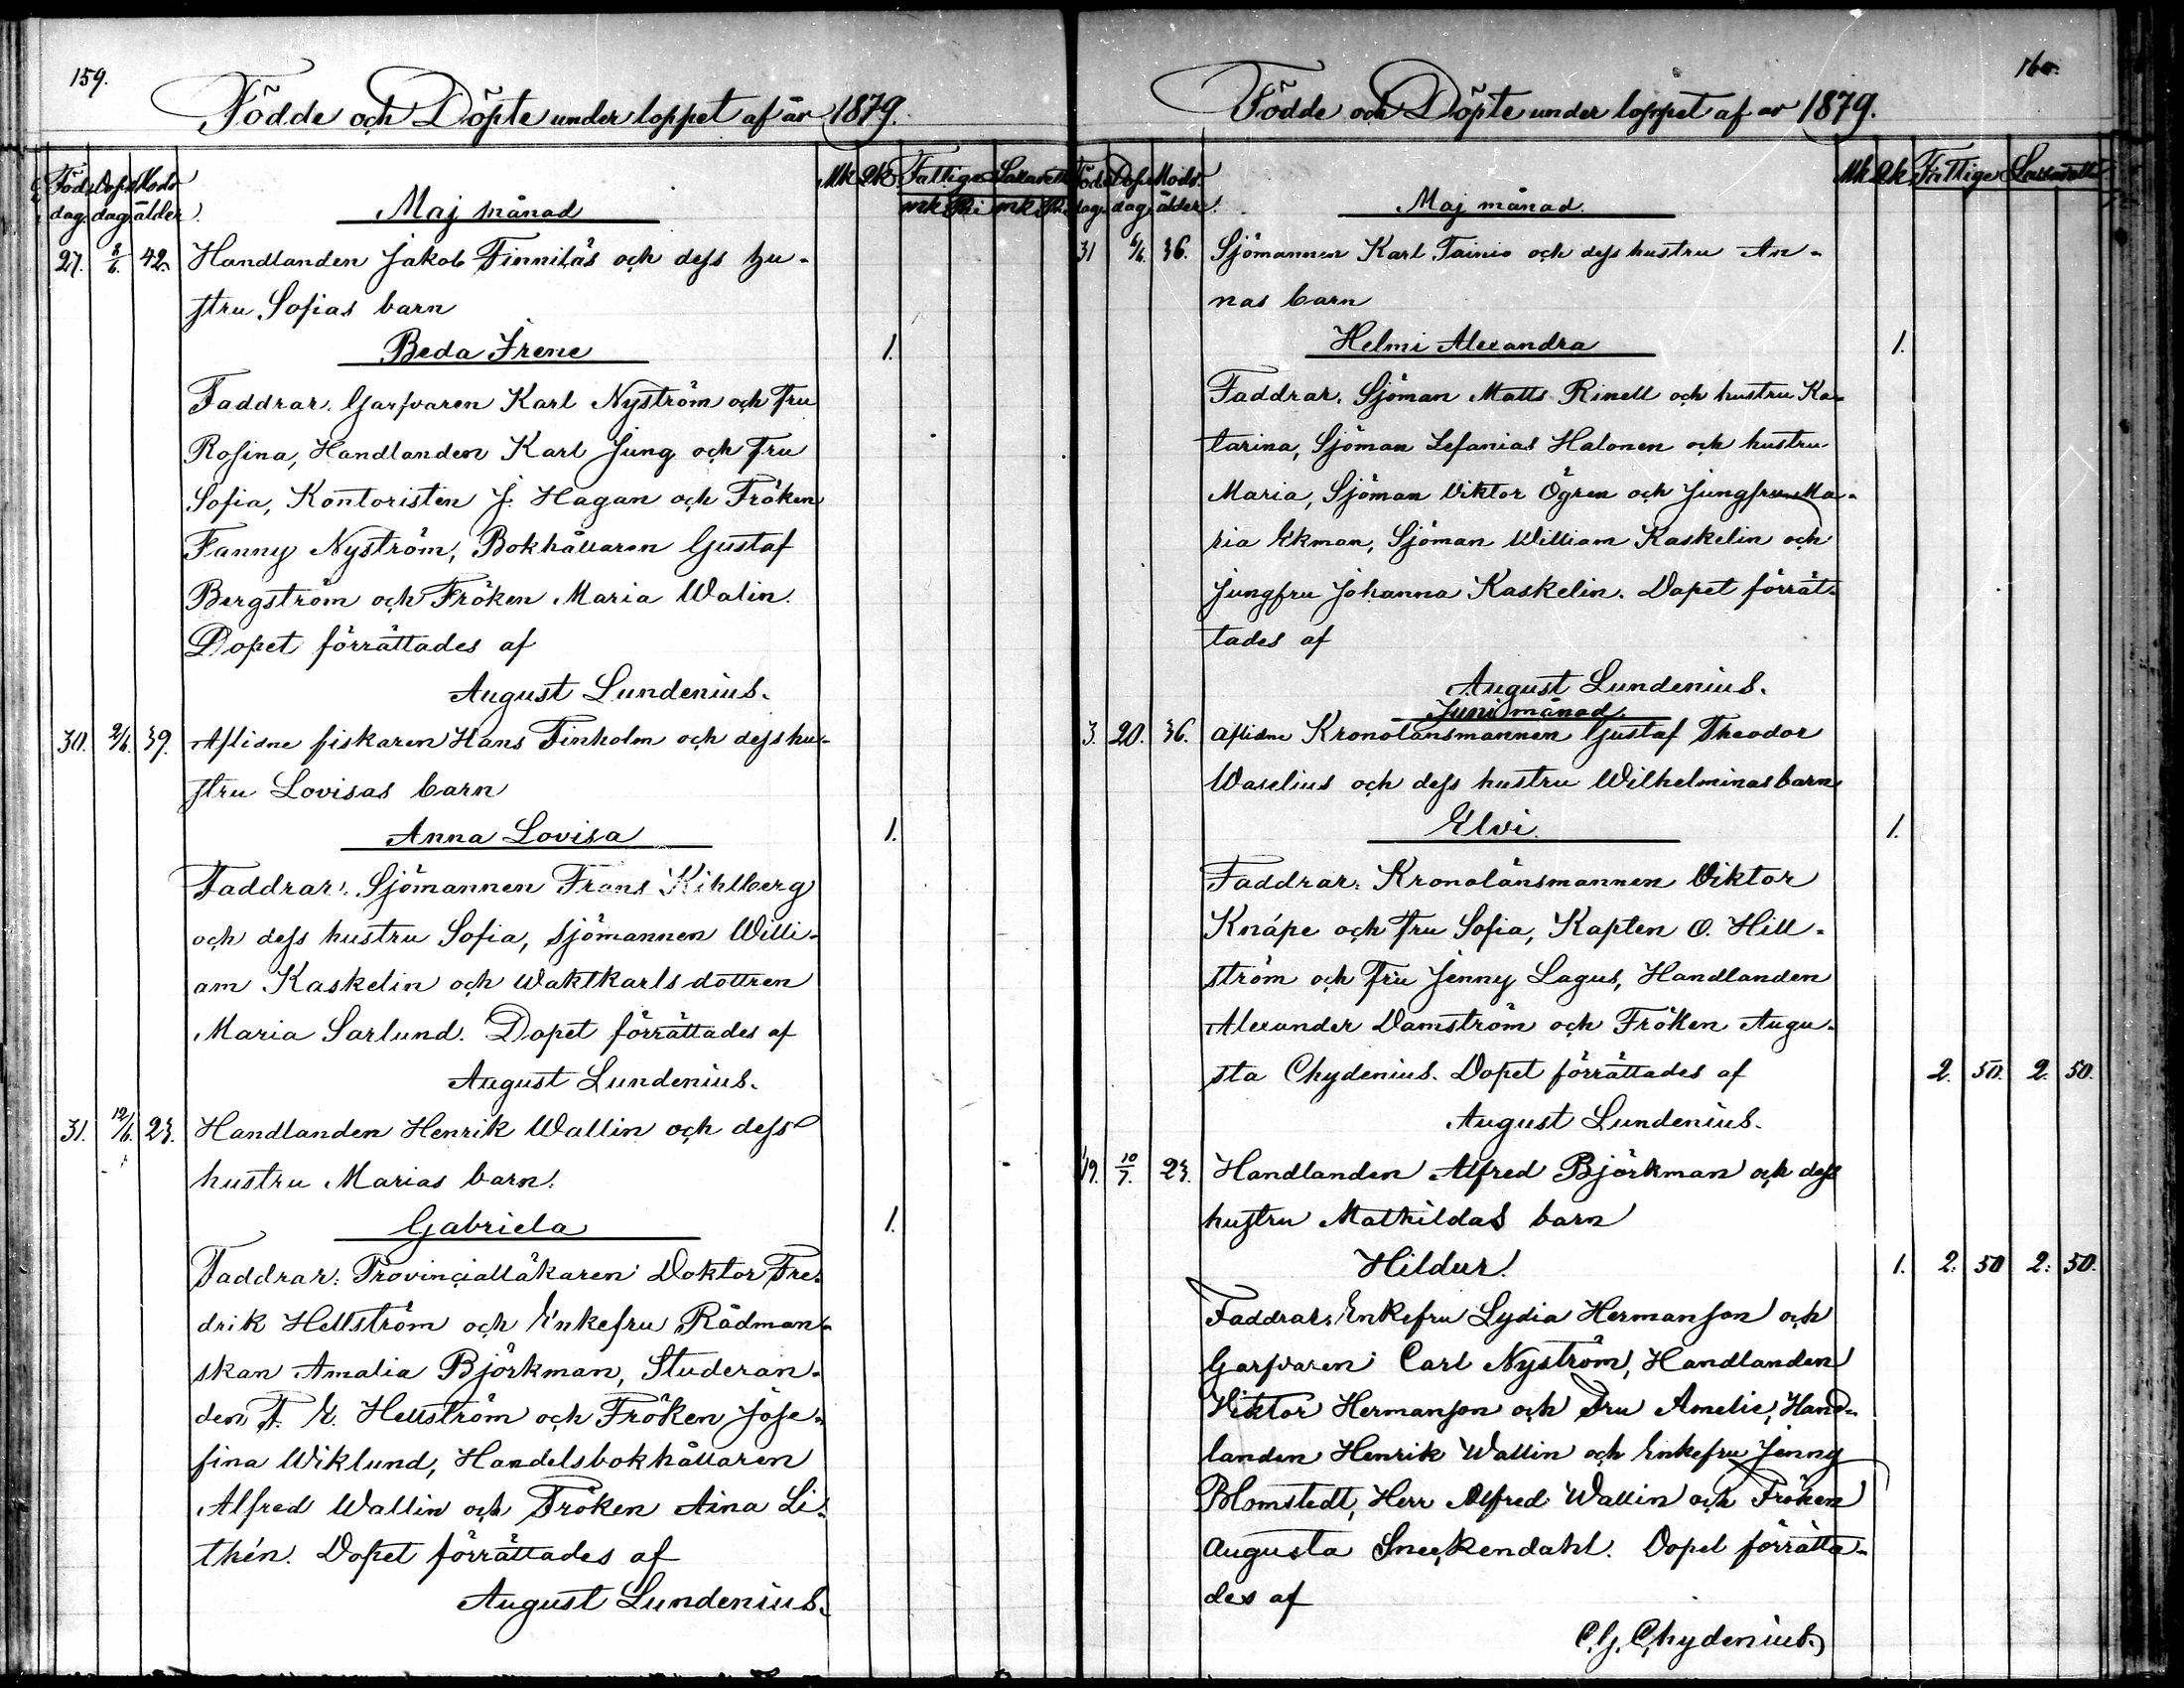 159.
Födde och Döpte under loppet af år 1879.
Föd. Dop. Mods Mk Qk Fattige Lassarett
dag. dag. ålder. Maj månad mrk Pi mrk Pi
27. 8/6. 42. Handlanden Jakob Finniläs och dess hu-
stru Sofias barn
Beda Irene 1.
Faddrar. Garfvaren Karl Nyström och Fru
Rosina, Handlanden Karl Jung och Fru
Sofia, Kontoristen J. Hagan och Fröken
Fanny Nyström, Bokhållaren Gustaf
Bergström och Fröken Maria Walin.
Dopet förrättades af
August Lundenius.
30. 2/6. 39. Aflidne fiskaren Hans Finholm och dess hu-
stru Lovisas barn
Anna Lovisa 1.
Faddrar: Sjömannen Frans Kihlberg
och dess hustru Sofia, Sjömannen Willi-
am Kaskelin och Waktkarlsdottren
Maria Sarlund. Dopet förrättades af
August Lundenius.
31. 12/6. 23. Handlanden Henrik Wallin och dess
hustru Marias barn.
Gabriela 1.
Faddrar: Provincialläkaren Doktor Fre-
drik Hellström och Enkefru Rådman-
skan Amalia Björkman, Studeran-
den F. E. Hellström och Fröken Jose-
fina Wiklund, Handelsbokhållaren
Alfred Wallin och Fröken Aina Li-
thén. Dopet förrättades af
August Lundenius.
160.
Födde och Döpte under loppet af år 1879.
Föd. Dop. Mods. Mk Qk Fattige Lassarett
dag. dag. ålder. Maj månad.
31 6/6. 36. Sjömannen Karl Tainio och dess hustru An-
nas barn
Helmi Alexandra 1.
Faddrar. Sjöman Matts Rinell och hustru Ka-
tarina, Sjöman Sefanias Halonen och hustru
Maria, Sjöman Viktor Ögren och Jungfru Ma-
ria Ekman, Sjöman William Kaskelin och
Jungfru Johanna Kaskelin. Dopet förrät-
tades af
August Lundenius.
Juni månad.
3. 20. 36. Aflidne Kronolänsmannen Gustaf Theodor
Waselius och dess hustru Wilhelminas barn
Elvi. 1.
Faddrar: Kronolänsmannen Viktor
Knape och Fru Sofia, Kapten O. Hell-
ström och Fru Jenny Lagus, Handlanden
Alexander Damström och Fröken Augu-
sta Chydenius. Dopet förrättades af 2. 50. 2. 50.
August Lundenius.
19. 10/7. 23. Handlanden Alfred Björkman och dess
hustru Mathildas barn
Hildur. 1. 2. 50 2. 50.
Faddrar. Enkefru Lydia Hermanson och
Garfvaren Carl Nyström, Handlanden
Viktor Hermanson och Fru Amelie, Hand-
landen Henrik Wallin och Enkefru Jenny
Blomstedt, Herr Alfred Wallin och Fröken
Augusta Sneckendahl. Dopet förrätta-
des af
C. G. Chydenius.